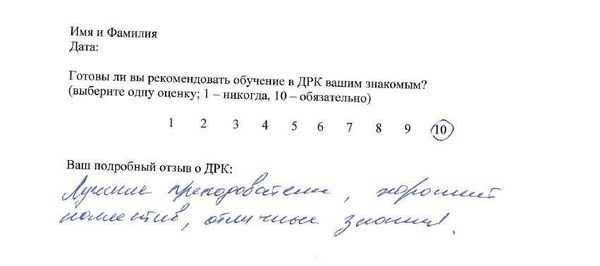 Имя и Фамилия
Дата:
Готовы ли вы рекомендовать обучение в ДРК вашим знакомым?
(выберите одну оценку; 1 – никогда, 10 – обязательно)
1 2 3 4 5 6 7 8 9 10
Ваш подробный отзыв о ДРК:
Лучшие преподаватели, хороший
коллектив, отличные знания.